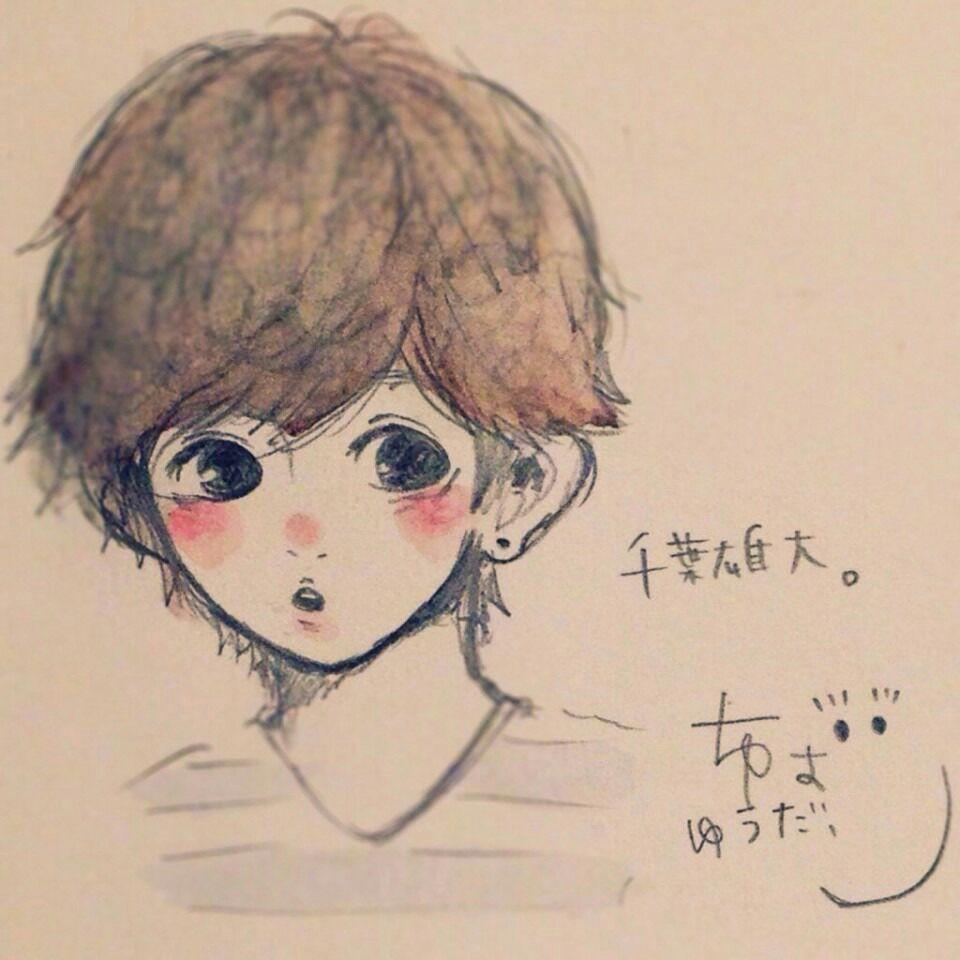 千葉雄大。
ちば
ゆうだい